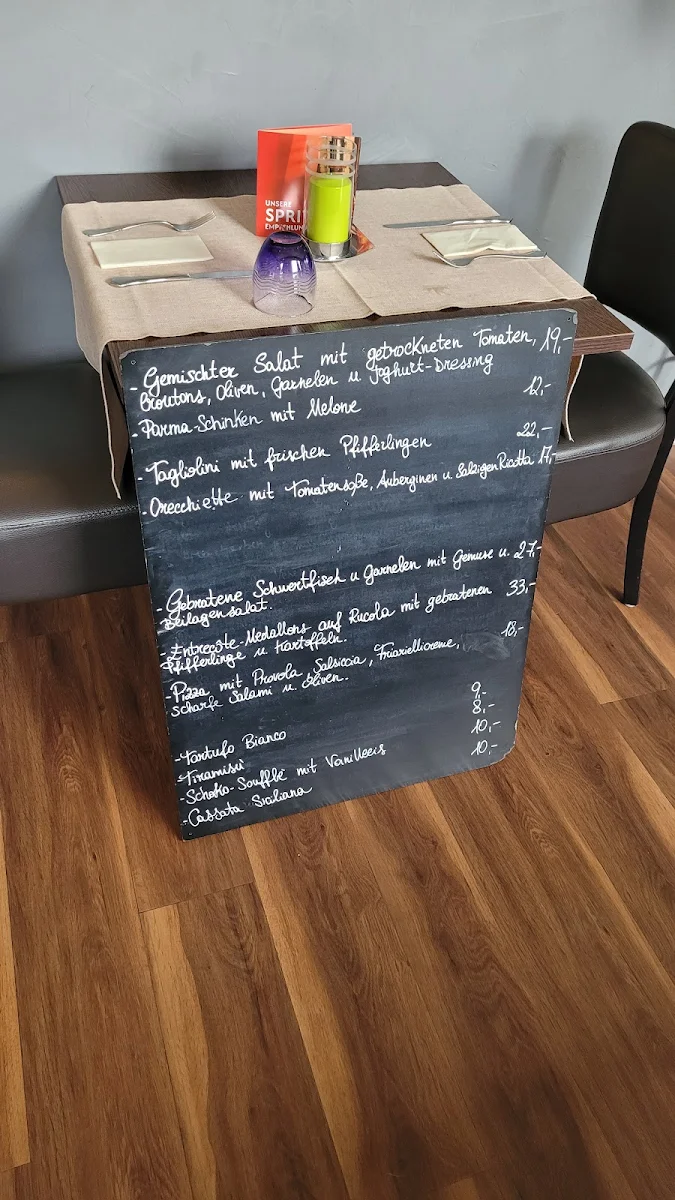 UNSERE
SPRI
EMPFEHLUN
- Gemischter Salat mit getrockneten Tomaten, 19,-
Croutons, Oliven, Garnelen u Joghurt-Dressing
- Parma-Schinken mit Melone 12,-
- Tagliolini mit frischen Pfifferlingen 22,-
- Orecchiette mit Tomatensoße, Auberginen u. Salzigen Ricotta 17,-
- Gebratene Schwertfisch u Garnelen mit Gemüse u. 27,-
Beilagensalat.
- Entrecôte-Medallons auf Rucola mit gebratenen 33,-
Pfifferlinge u Kartoffeln.
- Pizza mit Provola, Salsiccia, Friarielliceme, 18,-
scharfe Salami u. Oliven.
- Tartufo Bianco 9,-
- Tiramisù 8,-
- Schoko-Soufflè mit Vanilleeis 10,-
- Cassata Siciliana 10,-